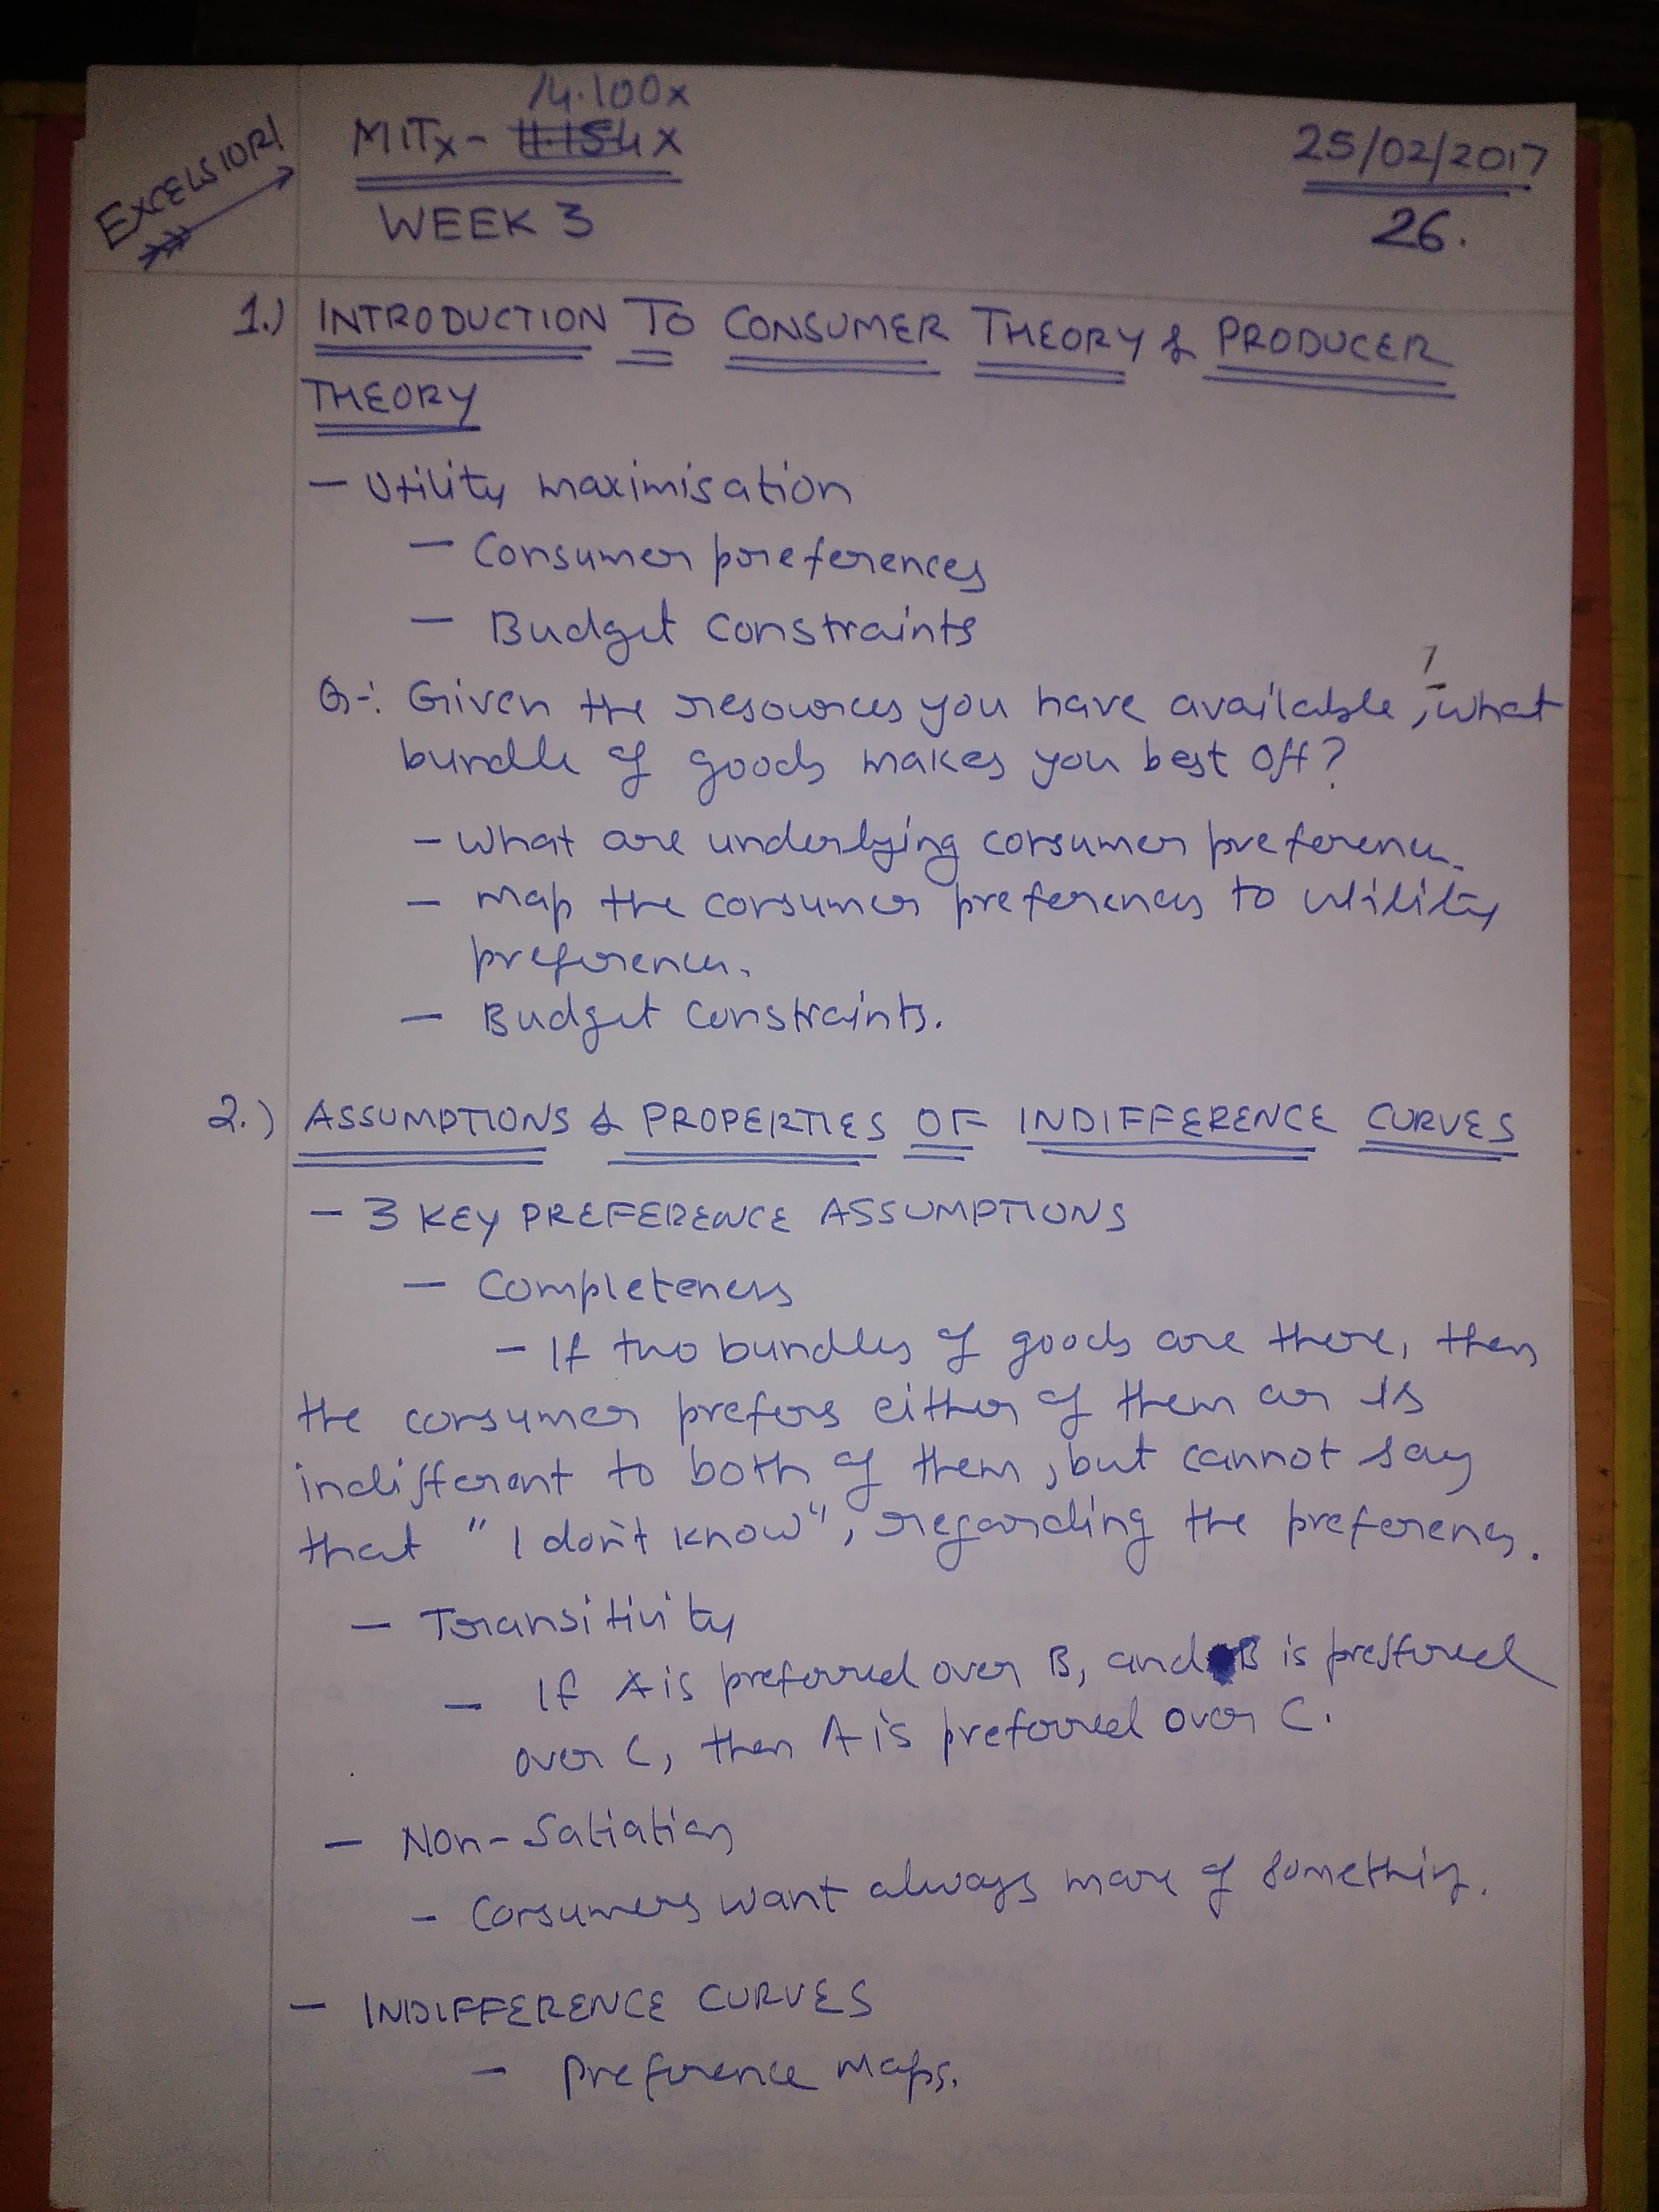 EXCELSIOR!
14.100x
MITx- 11.154x
WEEK 3
25/02/2017
26.
1.) INTRODUCTION TO CONSUMER THEORY & PRODUCER
THEORY
- Utility maximisation
- Consumer preferences
- Budget constraints
Q-: Given the resources you have available, what
bundle of goods makes you best off?
- What are underlying consumer preference.
- Map the consumer preferences to utility
preference.
- Budget Constraints.
2.) ASSUMPTIONS & PROPERTIES OF INDIFFERENCE CURVES
- 3 KEY PREFERENCE ASSUMPTIONS
- Completeness
- If two bundles of goods are there, then
the consumer prefers either of them or is
indifferent to both of them, but cannot say
that "I don't know", regarding the preferences.
- Transitivity
- If A is preferred over B, and B is preferred
over C, then A is preferred over C.
- Non-Satiation
- Consumers want always more of something.
- INDIFFERENCE CURVES
- Preference Maps.